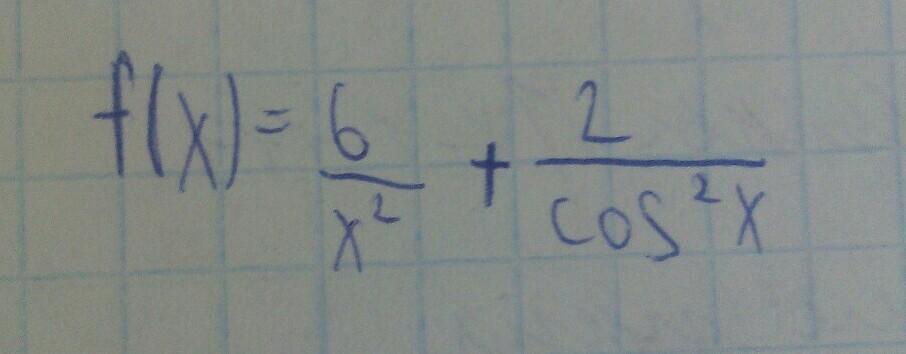 f(x) = 6/x² + 2/cos²x